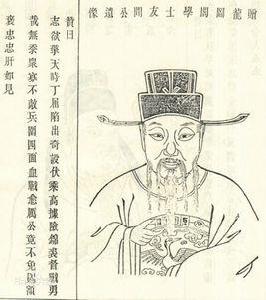 贈龍圖閣學士友聞公遺像
贊曰
志欲擎天時丁屈陷出奇設伏乘高據險錦裘督戰勇
哉無柰眾寡不敵兵圍四面血戰愈厲公竟不免額
褒忠忠肝如見